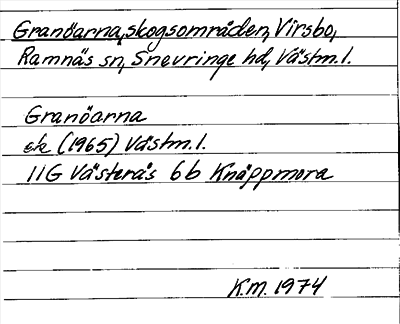 Granöarna, skogsområden, Virsbo,
Ramnäs sn, Snevringe hd, Västm.l.
Granöarna
ek (1965) Västm.l.
11G Västerås 6b Knäppmora
K.M. 1974